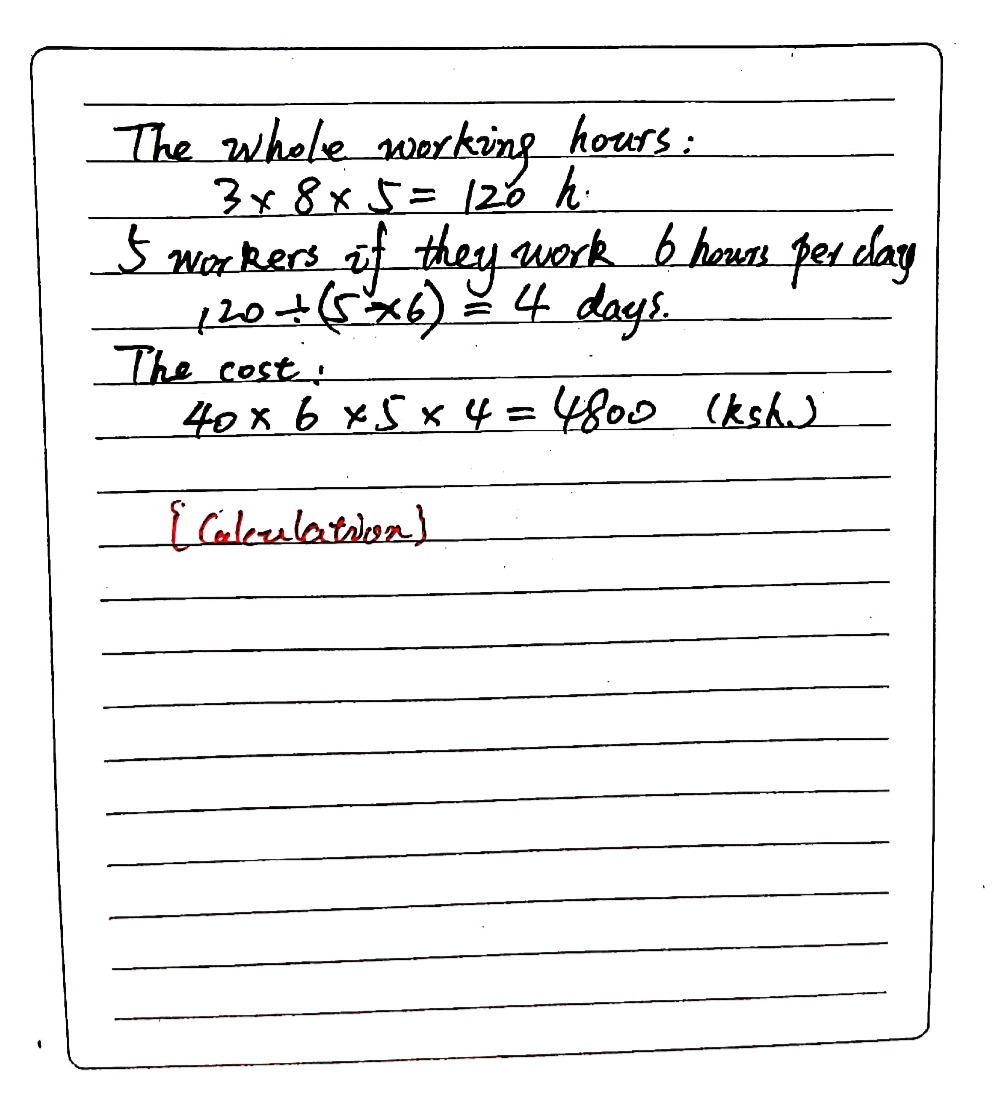 The whole working hours:
3 × 8 × 5 = 120 h.
5 workers if they work 6 hours per day
120 ÷ (5 × 6) = 4 days.
The cost:
40 × 6 × 5 × 4 = 4800 (ksh.)
[Calculation]